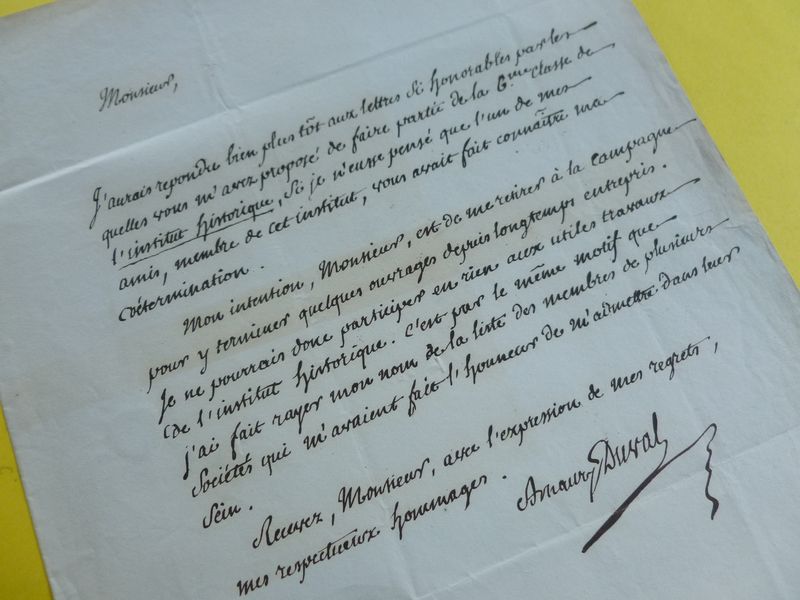 Monsieur,
J'aurais repondu bien plus tôt aux lettres si honorables par les
quelles vous m'avez proposé de faire partie de la 6me classe de
l'institut historique, Si je n'eusse pensé que l'un de mes
amis, membre de cet institut, vous avait fait connaître ma
détermination.
Mon intention, Monsieur, est de me retirer à la campagne
pour y terminer quelques ouvrages depuis longtemps entrepris.
Je ne pourrais donc participer en rien aux utiles travaux
de l'institut historique. C'est par le même motif que
j'ai fait rayer mon nom de la liste des membres de plusieurs
Sociétés qui m'avaient fait l'honneur de m'admettre dans leur
Sein.
Recevez, Monsieur, avec l'expression de mes regrets,
mes respectueux hommages.
Amaury Duval